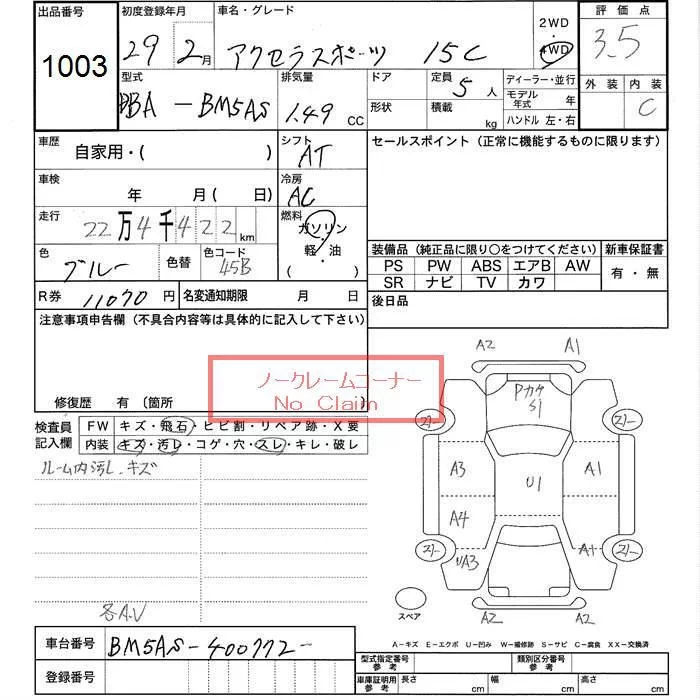 出品番号 初度登録年月 車名・グレード 2WD 評価点
1003 29 2月 アクセラスポーツ 15C 4WD 3.5
型式 排気量 ドア 定員 ディーラー・並行 外装 内装
DBA-BM5AS 1.49 CC 5人 モデル年式 年 C
形状 積載 kg ハンドル 左・右
車歴 自家用・( ) シフト AT セールスポイント(正常に機能するものに限ります)
車検 年 月( 日) 冷房 AC
走行 22万4千422km 燃料 ガソリン
軽・油
( )
色 ブルー 色替 色コード 45B
装備品(純正品に限り○をつけてください) 新車保証書
PS PW ABS エアB AW 有・無
SR ナビ TV カワ
R券 11070円 名変通知期限 月 日 後日品
注意事項申告欄(不具合内容等は具体的に記入して下さい)
ノークレームコーナー
No Claim
修復歴 有(箇所 )
検査員記入欄 FW キズ・飛石・ヒビ割・リペア跡・X要
内装 キズ・汚レ・コゲ・穴・スレ・キレ・破レ
ルーム内汚し、キズ
各A.V
A2 A1
Pカケ
S1
A3 U1 A1
A4
UA3 A1
A2 A2
スペア
A-キズ E-エクボ U-凹み W-補修跡 S-サビ C-腐食 XX-交換済
車台番号 BM5AS-400772-
登録番号
型式指定番号参考 類別区分番号参考
車庫証明用参考 長さ cm 幅 cm 高さ cm